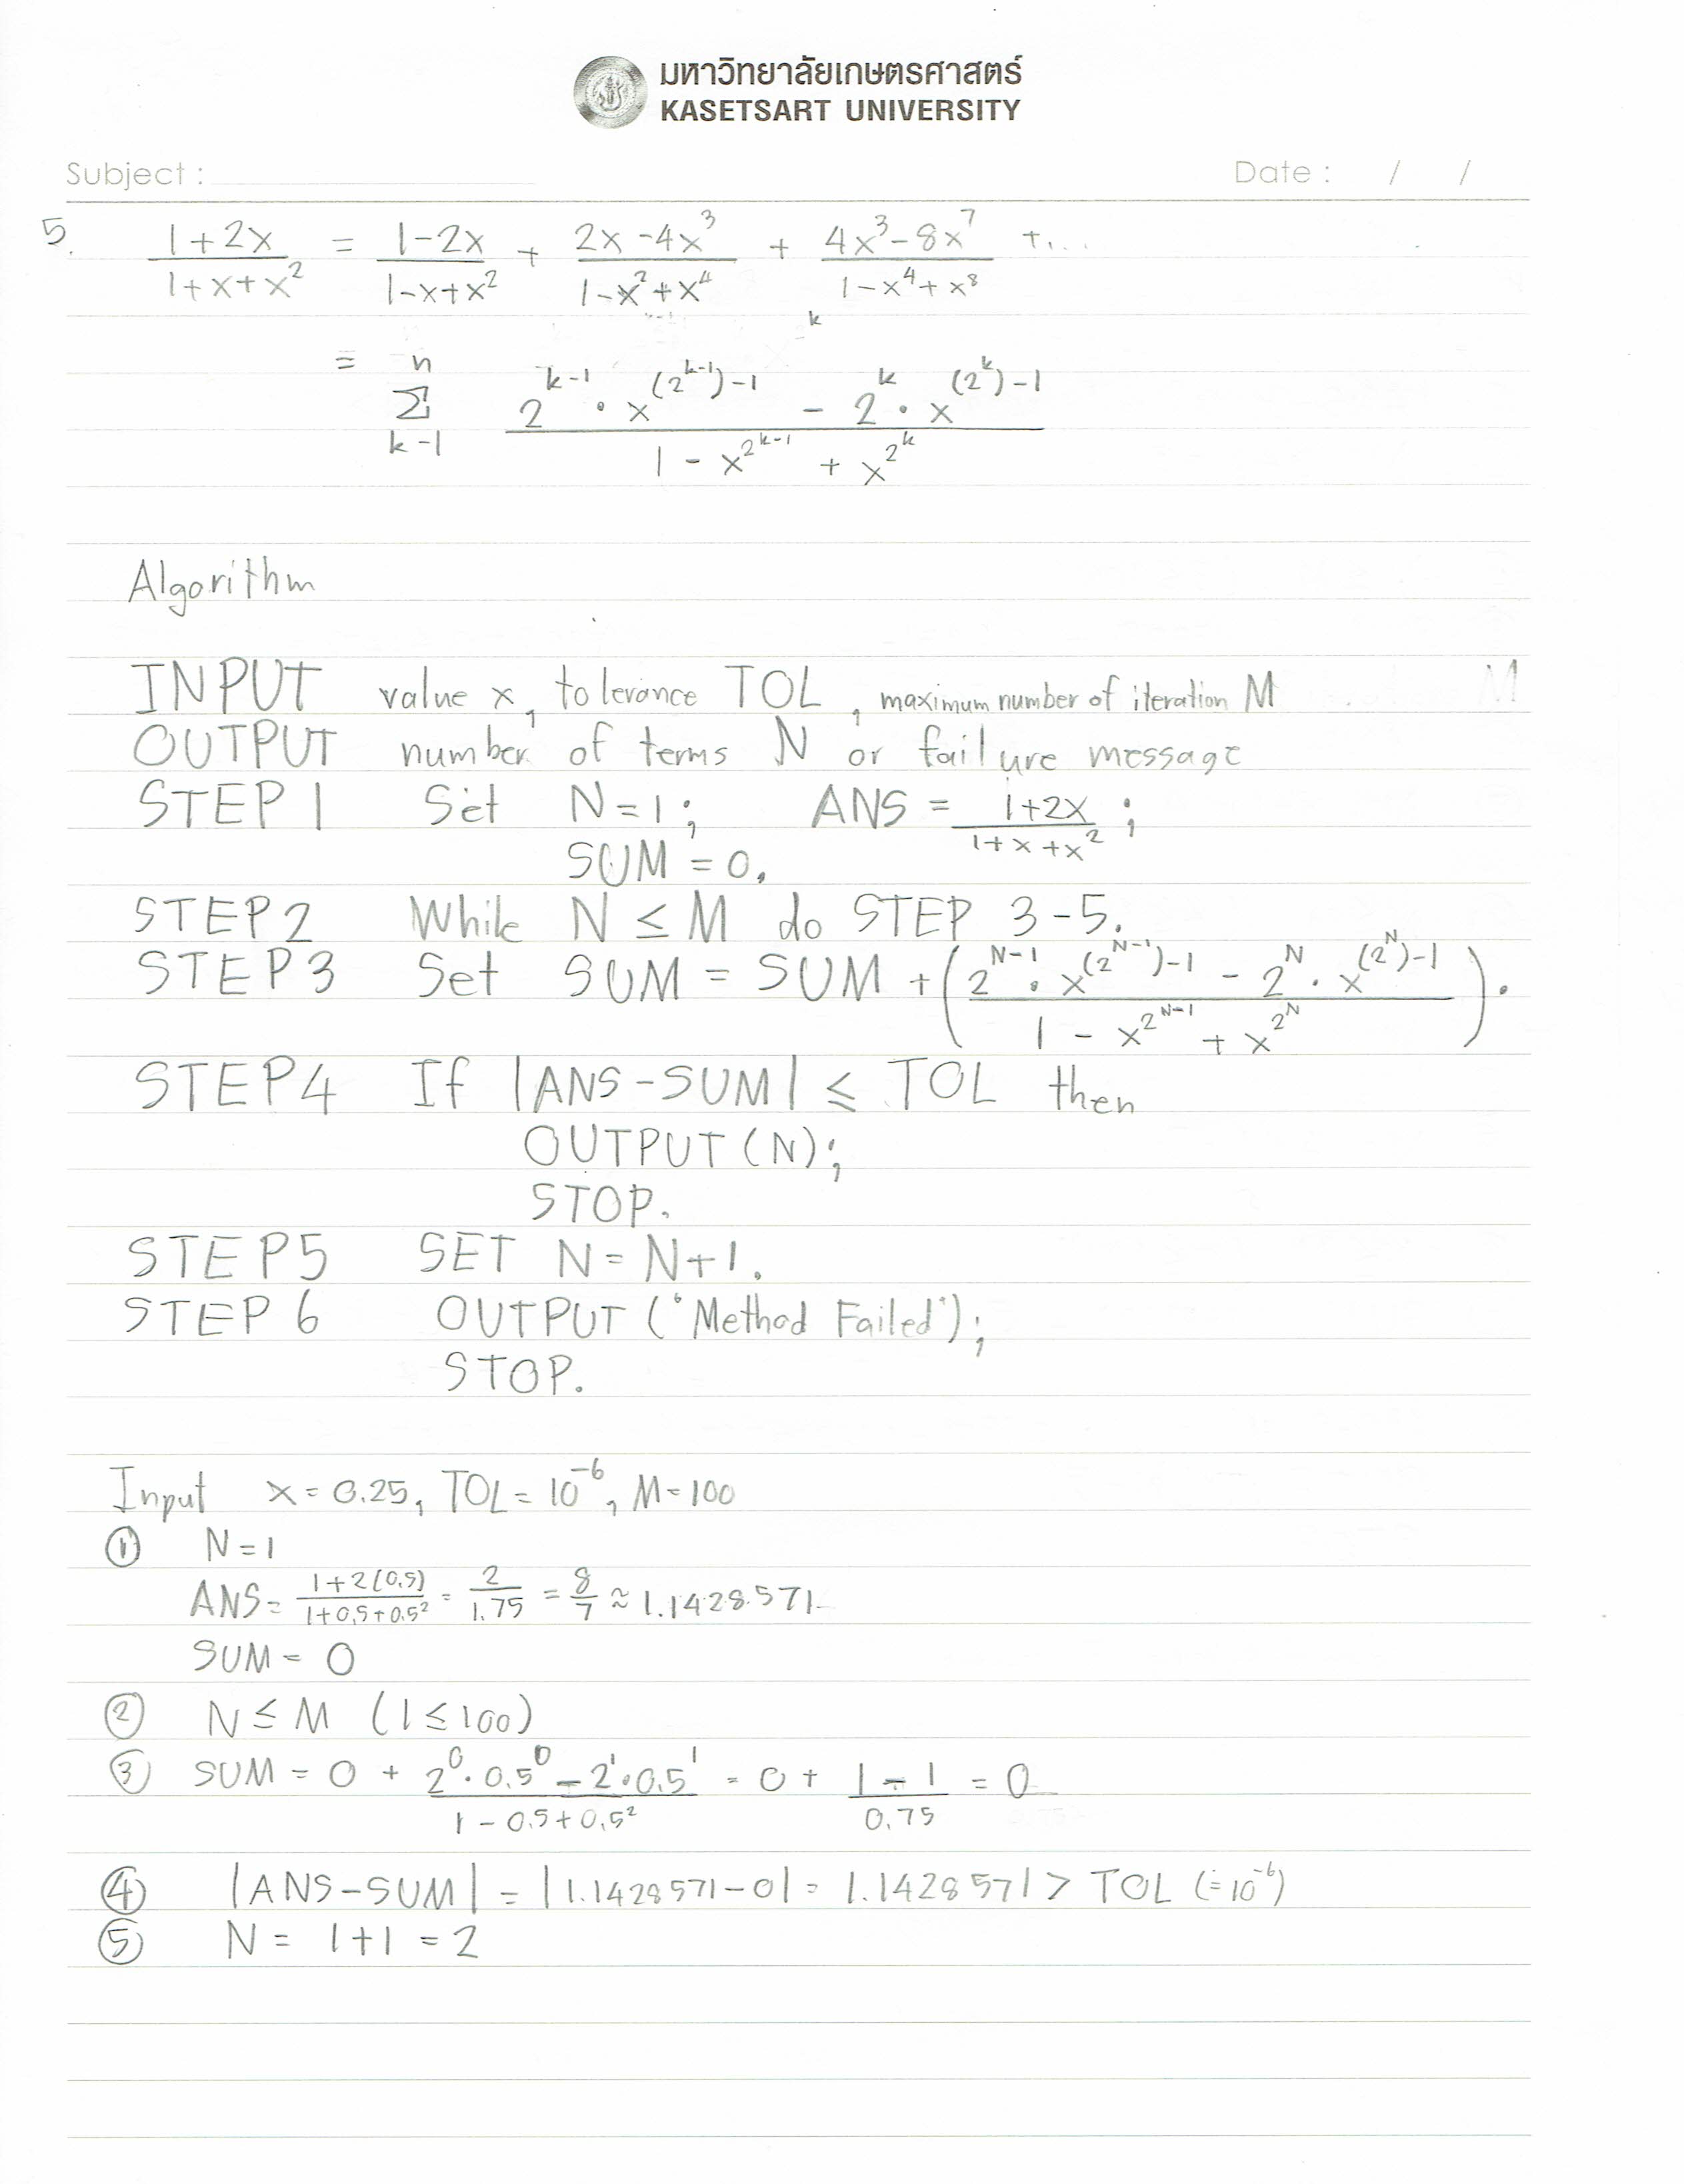 มหาวิทยาลัยเกษตรศาสตร์
KASETSART UNIVERSITY
Subject : Date : / /
5. (1+2x)/(1+x+x²) = (1-2x)/(1-x+x²) + (2x-4x³)/(1-x²+x⁴) + (4x³-8x⁷)/(1-x⁴+x⁸) + ...
k
= Σ_{k-1}^{n} (2^{k-1} · x^{(2^{k-1})-1} - 2^k · x^{(2^k)-1})/(1 - x^{2^{k-1}} + x^{2^k})
Algorithm
INPUT value x, tolerance TOL, maximum number of iteration M M
OUTPUT number of terms N or failure message
STEP 1 Set N=1; ANS = (1+2x)/(1+x+x²);
SUM = 0.
STEP 2 While N ≤ M do STEP 3-5.
STEP 3 Set SUM = SUM + ((2^{N-1} · x^{(2^{N-1})-1} - 2^N · x^{(2^N)-1})/(1 - x^{2^{N-1}} + x^{2^N})).
STEP 4 If |ANS-SUM| ≤ TOL then
OUTPUT (N);
STOP.
STEP 5 SET N = N+1.
STEP 6 OUTPUT ('Method Failed');
STOP.
Input x = 0.25, TOL = 10^{-6}, M=100
① N=1
ANS = (1+2(0.5))/(1+0.5+0.5²) = 2/1.75 = 8/7 ≈ 1.1428571
SUM = 0
② N ≤ M (1 ≤ 100)
③ SUM = 0 + (2⁰·0.5⁰ - 2¹·0.5¹)/(1-0.5+0.5²) = 0 + (1-1)/0.75 = 0
④ |ANS-SUM| = |1.1428571-0| = 1.1428571 > TOL (=10^{-6})
⑤ N = 1+1 = 2